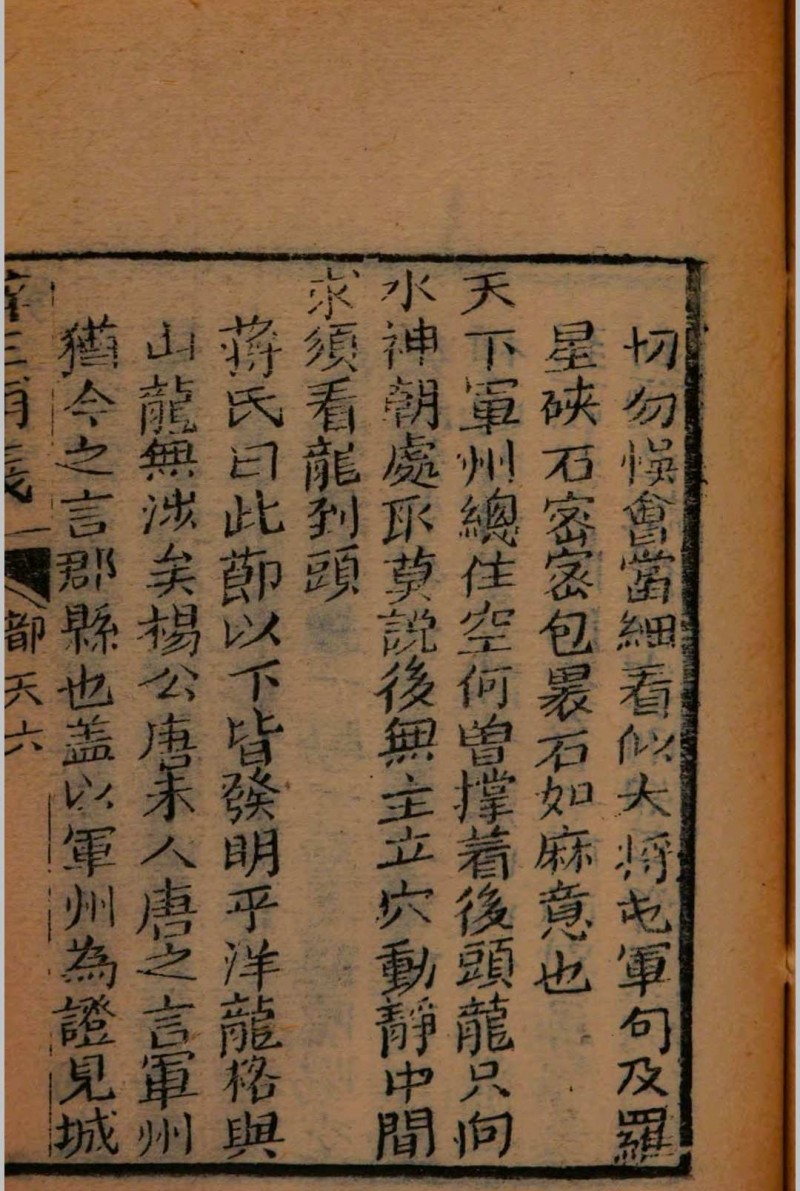 切勿悞會當細看似大將屯軍句及羅
星硤石密密包褁石如麻意也
天下軍州總住空何曾撑着後頭龍只向
水神朝處取莫說後無主立穴動靜中間
求須看龍到頭
蔣氏曰此節以下皆發明平洋龍格與
山龍無涉矣楊公唐末人唐之言軍州
猶今之言郡縣也盖以軍州為證見城
都天六